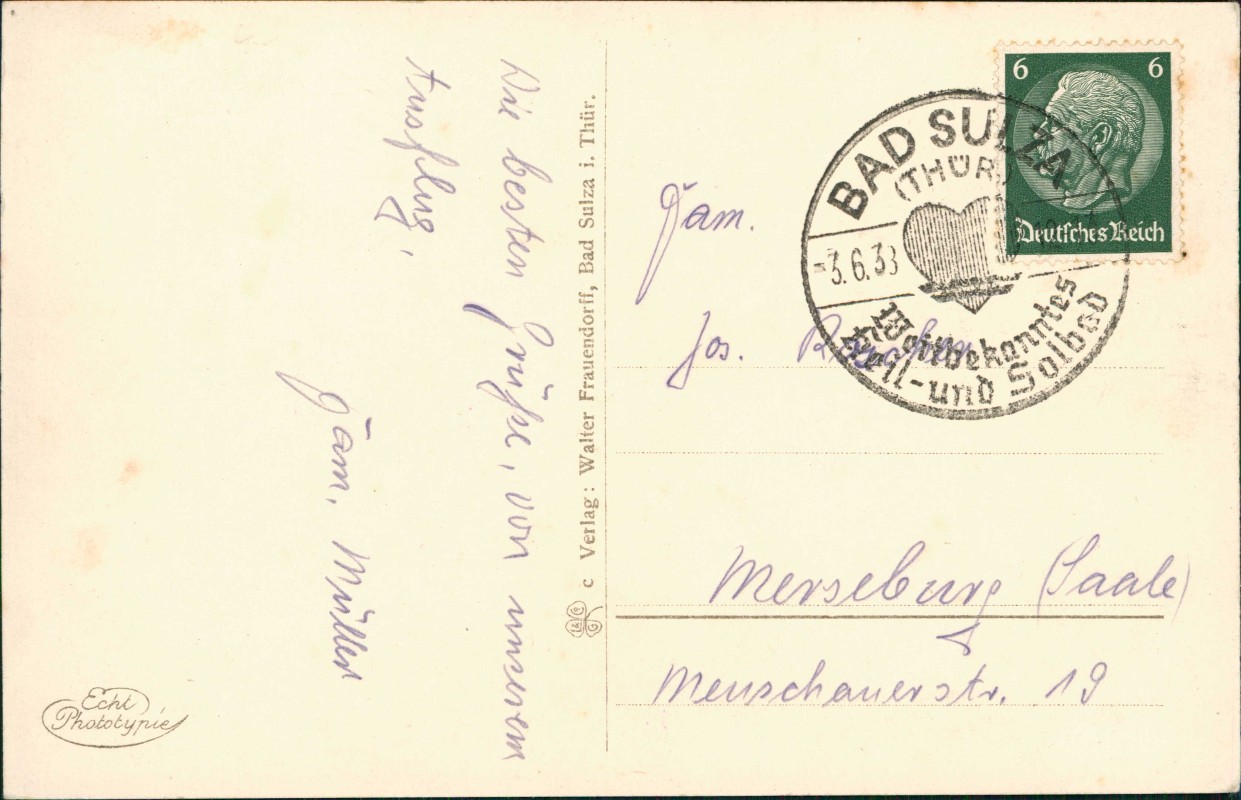 Die besten Grüße, von unserem
Ausflug,
Fam. Müller
Echt
Phototypie
c Verlag: Walter Frauendorff, Bad Sulza i. Thür.
6 6
Deutsches Reich
BAD SULZA
(THÜR.)
3.6.38
Weltbekanntes
Heil- und Solbad
Fam.
Jos.
Merseburg (Saale)
Meuschauerstr. 19